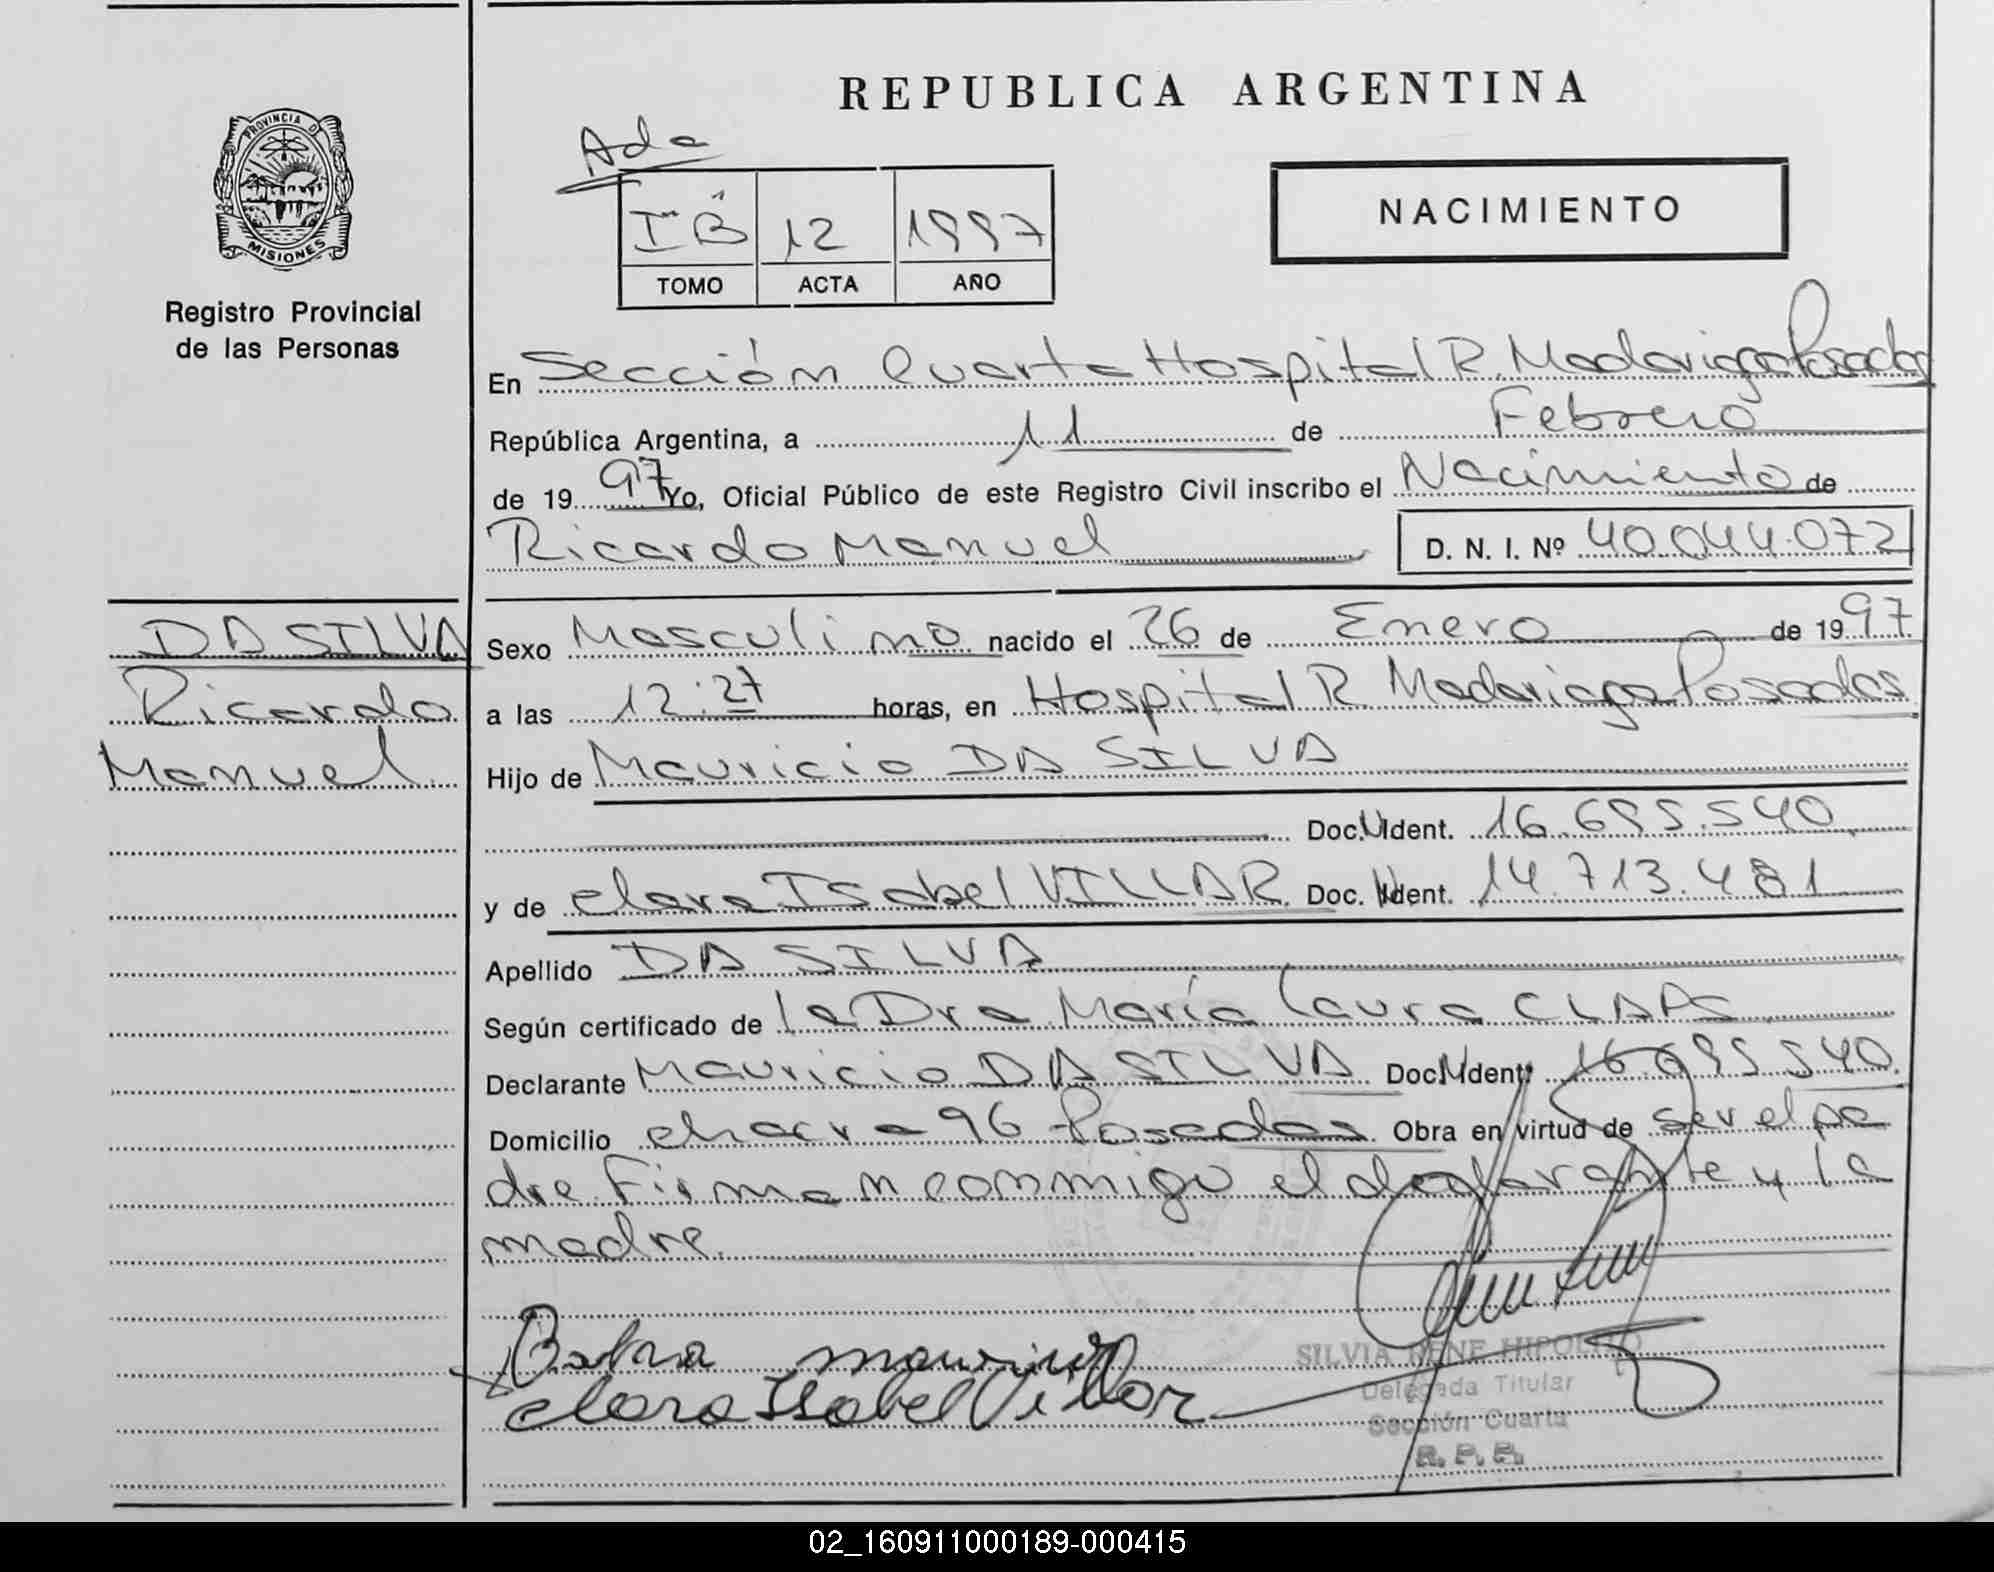 REPUBLICA ARGENTINA
PROVINCIA D
MISIONES
Registro Provincial
de las Personas
Ada
I "B" 12 1997
TOMO ACTA AÑO
NACIMIENTO
En Sección Cuarta Hospital R. Madariaga Posadas
República Argentina, a 11 de Febrero
de 1997 Yo, Oficial Público de este Registro Civil inscribo el Nacimiento de
Ricardo Manuel D. N. I. Nº 40.044.072
DA SILVA
Ricardo
Manuel
Sexo Masculino nacido el 26 de Enero de 1997
a las 12:27 horas, en Hospital R. Madariaga Posadas
Hijo de Mauricio DA SILVA
Doc. Ident. 16.695.540
y de Clara Isabel VILLAR Doc. Ident. 14.713.481
Apellido DA SILVA
Según certificado de la Dra María Laura CLAPS
Declarante Mauricio DA SILVA Doc. Ident. 16.695.540
Domicilio chacra 96 Posadas Obra en virtud de ser el pa
dre. Firman conmigo el declarante y la
madre.
Clara Isabel Villar
SILVIA RENE HIPOLITO
Delegada Titular
Sección Cuarta
R. P. P.
02_160911000189-000415